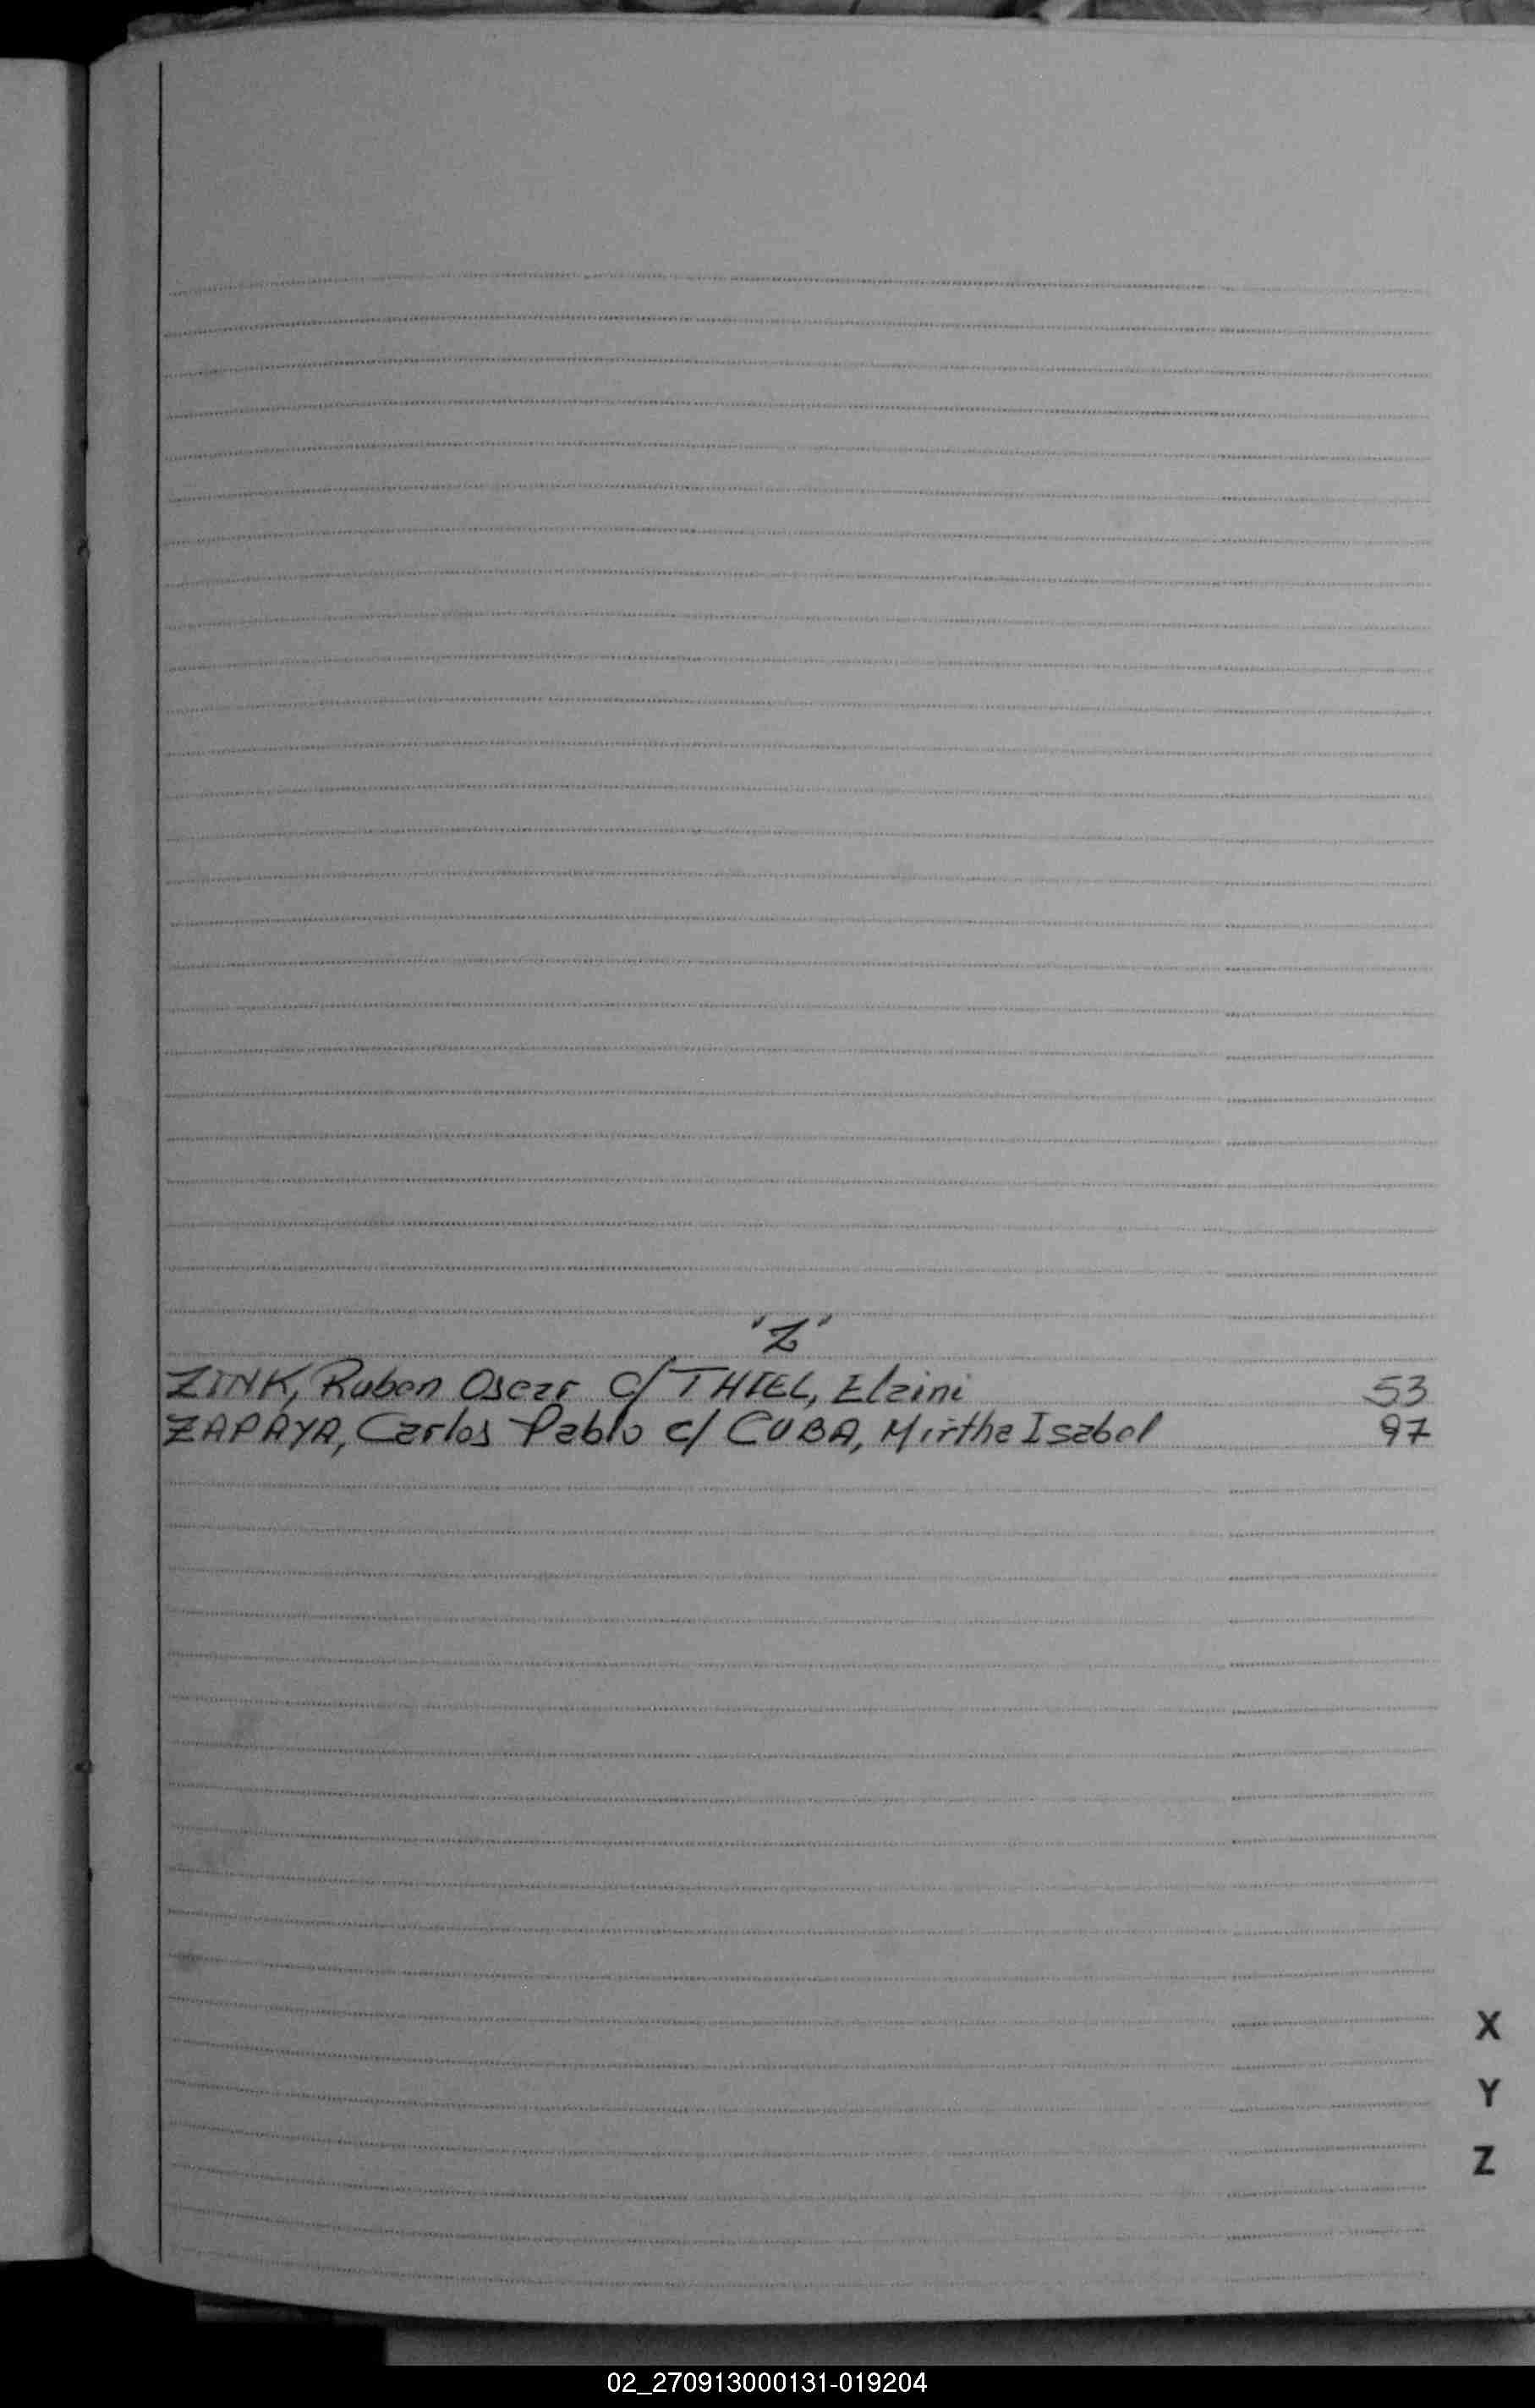 'Z'
ZINK, Ruben Oscar c/ THIEL, Elaini 53
ZAPAYA, Carlos Pablo c/ CUBA, Mirtha Isabel 97
X
Y
Z
02_270913000131-019204